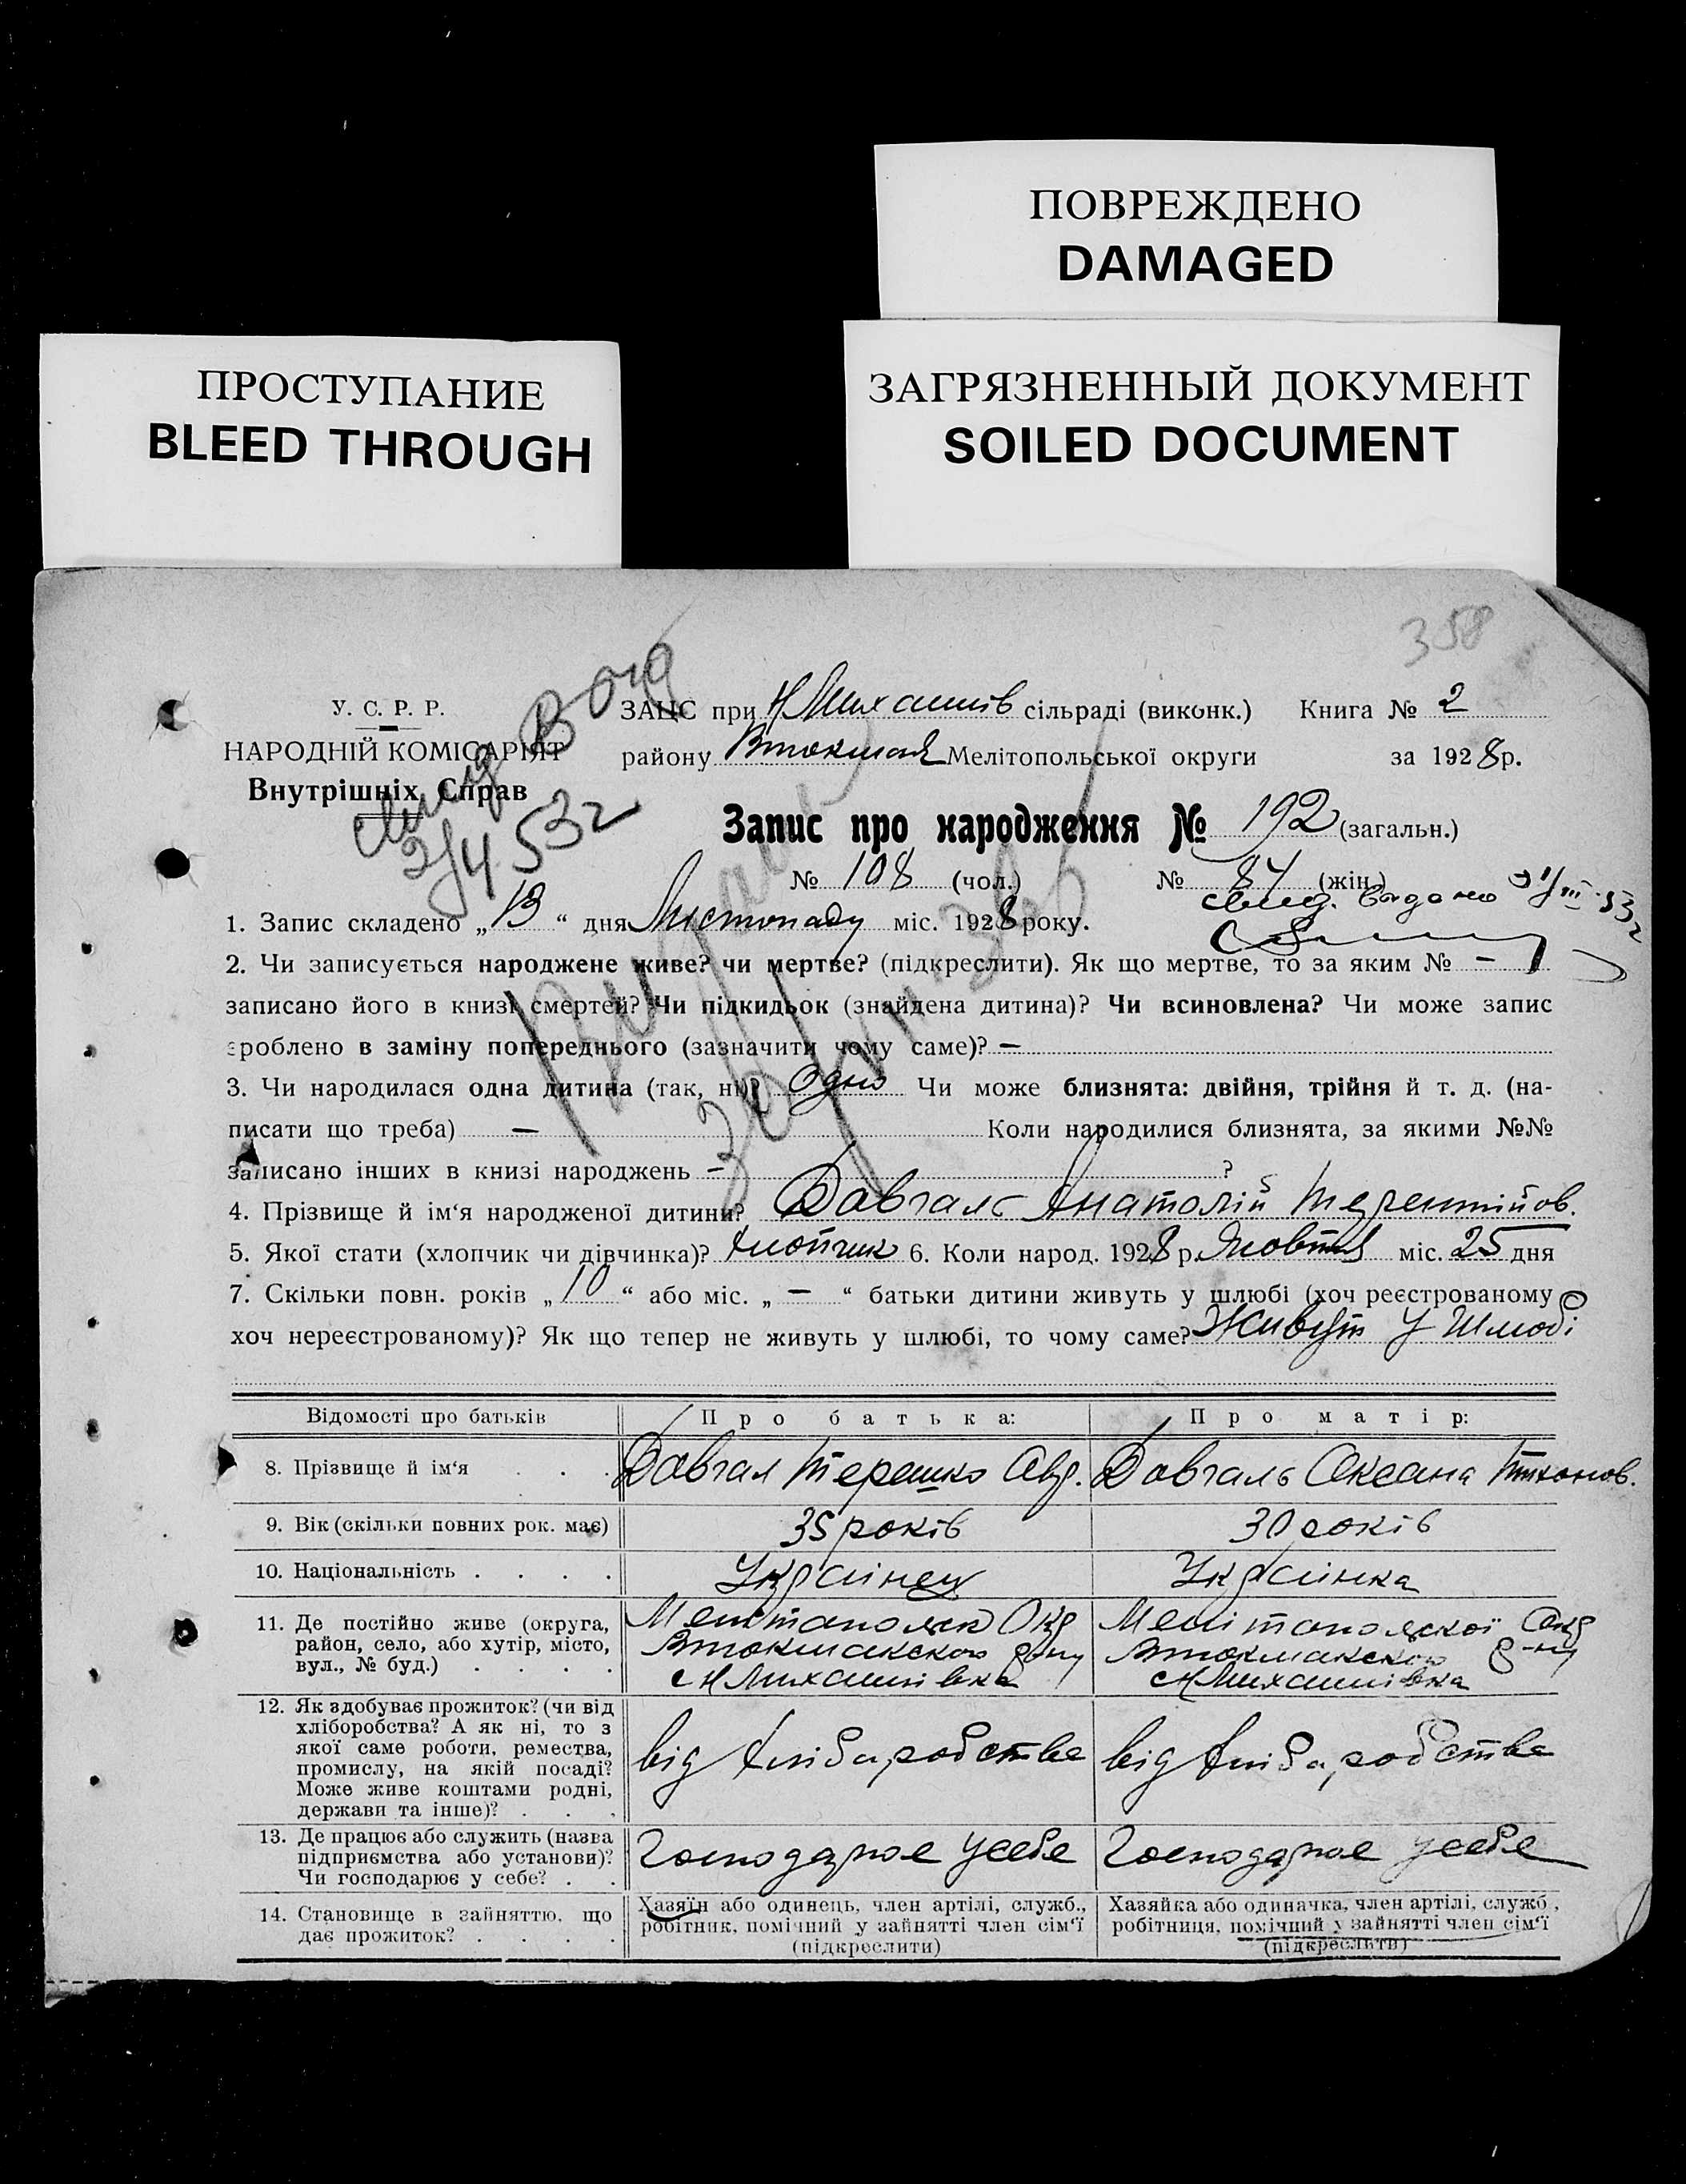 ПОВРЕЖДЕНО
DAMAGED
ПРОСТУПАНИЕ
BLEED THROUGH
ЗАГРЯЗНЕННЫЙ ДОКУМЕНТ
SOILED DOCUMENT
358
У. С. Р. Р.
НАРОДНІЙ КОМІСАРІЯТ
Внутрішніх Справ
2/4 53г
ЗАЦС при Н Михайлів сільраді (виконк.) Книга № 2
району Втокмак Мелітопольської округи за 1928 р.
Запис про народження № 192 (загальн.)
№ 108 (чол.) № 84 (жін.)
свид. видано
1. Запис складено „13“ дня Листопаду міс. 1928 року.
2. Чи записується народжене живе? чи мертве? (підкреслити). Як що мертве, то за яким № –
записано його в книзі смертей? Чи підкидьок (знайдена дитина)? Чи всиновлена? Чи може запис
зроблено в заміну попереднього (зазначити чому саме)? —
3. Чи народилася одна дитина (так, ні)? Одно Чи може близнята: двійня, трійня й т. д. (на-
писати що треба) — Коли народилися близнята, за якими №№
записано інших в книзі народжень – ?
4. Прізвище й ім‘я народженої дитини? Довгаль Анатолій Терентійов.
5. Якої стати (хлопчик чи дівчинка)? Хлопчик 6. Коли народ. 1928 р. Жовтня міс. 25 дня
7. Скільки повн. років „10“ або міс. „—“ батьки дитини живуть у шлюбі (хоч реєстрованому
хоч нереєстрованому)? Як що тепер не живуть у шлюбі, то чому саме? Живут У Шлюбі
Відомості про батьків Про батька: Про матір:
8. Прізвище й ім‘я . . . Довгал Терешко Авд. Довгаль Оксана Тихонов.
9. Вік (скільки повних рок. має) 35 років 30 років
10. Національність . . . . Українец Українка
11. Де постійно живе (округа, Мелітополск Окр Мелітополскої Окр
район, село, або хутір, місто, Втокмакского р-ну Втокмакского р-ну
вул., № буд.) . . . . с Н Михайлівка с Н Михайлівка
12. Як здобуває прожиток? (чи від
хліборобства? А як ні, то з
якої саме роботи, ремества,
промислу, на якій посаді? від хліборобства від хліборобства
Може живе коштами родні,
держави та інше)? . . .
13. Де працює або служить (назва
підприємства або установи)? Господарює усебе Господарює усебе
Чи господарює у себе? . .
14. Становище в зайняттю, що Хазяїн або одинець, член артілі, служб., Хазяйка або одиначка, член артілі, служб.,
дає прожиток? . . . . робітник, помічний у зайнятті член сім‘ї робітниця, помічний у зайнятті член сім‘ї
(підкреслити) (підкреслити)